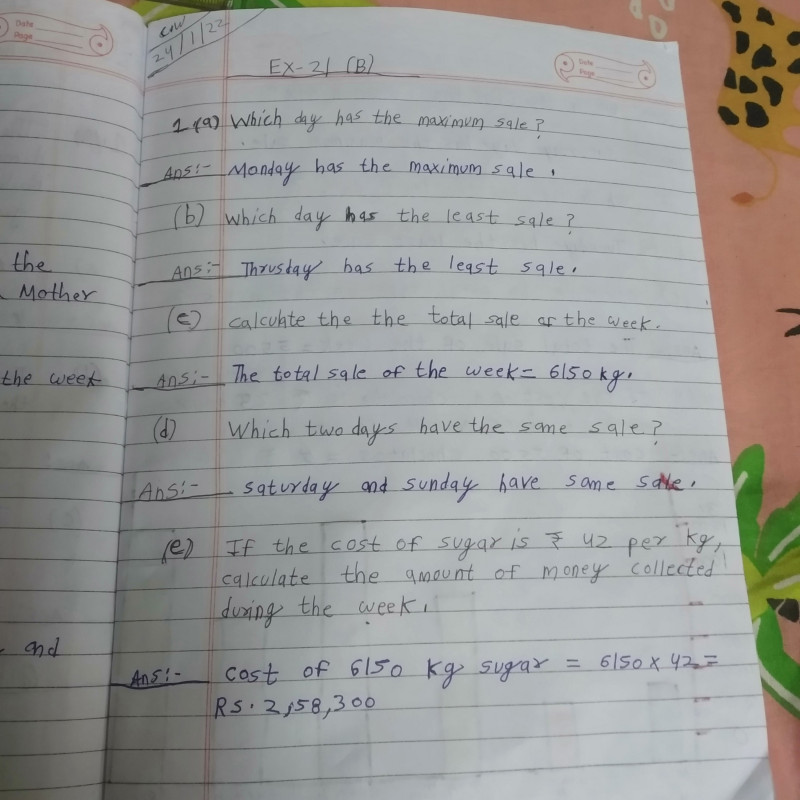 Date
Page
the
Mother
the week
and
C.W
24/1/22
Date
Page
EX-21 (B)
1.(a) Which day has the maximum sale?
Ans:- Monday has the maximum sale.
(b) which day has the least sale?
Ans:- Thrusday has the least sale.
(c) calculate the the total sale of the week.
Ans:- The total sale of the week = 6150 kg.
(d) Which two days have the same sale?
Ans:- saturday and sunday have same sale.
(e) If the cost of sugar is ₹ 42 per kg,
calculate the amount of money collected
during the week.
Ans:- cost of 6150 kg sugar = 6150 x 42 =
RS. 2,58,300